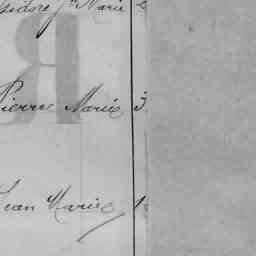 Isidore Jn Marie
Pierre Marie 3
Jean Marie 1